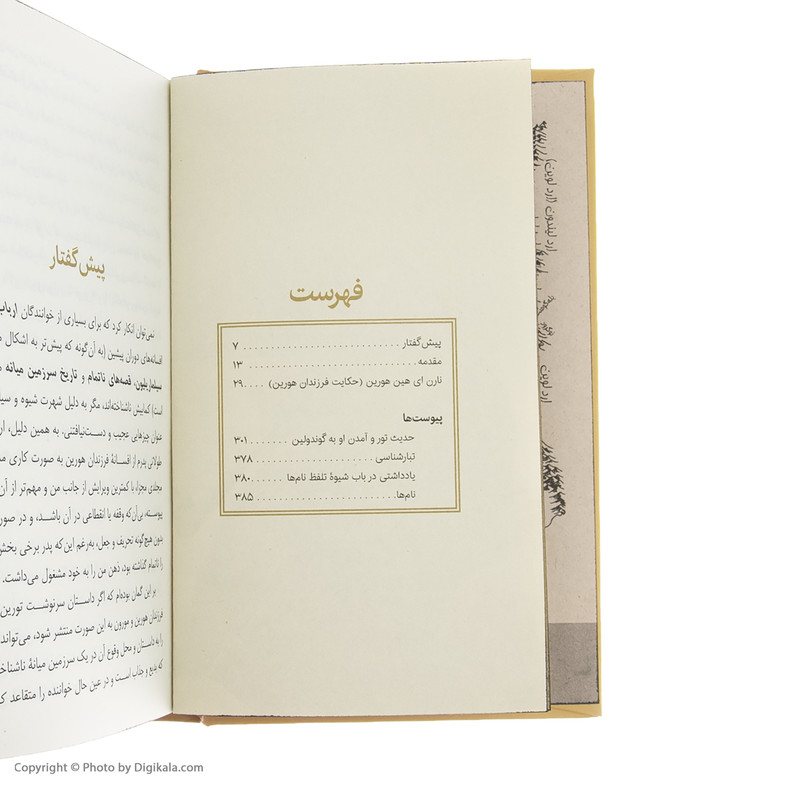 فهرست
پیش‌گفتار . . . . . . . . . . . . . . . . . . . . . . . . . . . . ۷
مقدمه . . . . . . . . . . . . . . . . . . . . . . . . . . . . . ۱۳
نارن ای هین هورین (حکایت فرزندان هورین) . . . . ۲۹
پیوست‌ها
حدیث تور و آمدن او به گوندولین . . . . . . . ۳۰۱
تبارشناسی . . . . . . . . . . . . . . . . . . . . . ۳۷۸
یادداشتی در باب شیوهٔ تلفظ نام‌ها . . . . . . ۳۸۰
نام‌ها . . . . . . . . . . . . . . . . . . . . . . . . . ۳۸۵
پیش‌گفتار
نمی‌توان انکار کرد که برای بسیاری از خوانندگان ارباب
افسانه‌های دوران پیشین (به آن‌گونه که پیش‌تر به اشکال
سیلماریلیون، قصه‌های ناتمام و تاریخ سرزمین میانه
است) کمابیش ناشناخته‌اند، مگر به دلیل شهرت شیوه و
عنوان چیزهایی عجیب و دست‌نیافتنی. به همین دلیل،
طولانی پدرم از افسانهٔ فرزندان هورین به صورت کاری
مجلدی مجزا، با کمترین ویرایش از جانب من و مهم‌تر از آن
پیوسته، بی‌آن‌که وقفه یا انقطاعی در آن باشد، و در
بدون هیچ‌گونه تحریف و جعل، به‌رغم این‌که پدر برخی
را ناتمام گذاشته بود، ذهن من را به خود مشغول می‌داشت.
بر این گمان بوده‌ام که اگر داستان سرنوشت تورین
فرزندان هورین و مورون به این صورت منتشر شود، می‌تواند
را به داستان و محل وقوع آن در یک سرزمین میانهٔ
که بدیع و جذاب است و در عین حال خواننده را متقاعد
ارد لیندون (ارد لوین)
ارد لوین
Copyright © Photo by Digikala.com